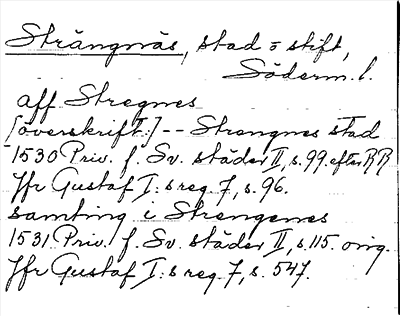 Strängnäs, stad o stift,
Söderm. l.
aff Stregnes
[överskrift:] -- Strengnes stad
1530 Priv. f. Sv. städer II, s. 99. efter RR
Jfr Gustaf I: s reg. 7, s. 96.
samting i Strengenes
1531 Priv. f. Sv. städer II, s. 115. orig.
Jfr Gustaf I: s reg. 7, s. 547.